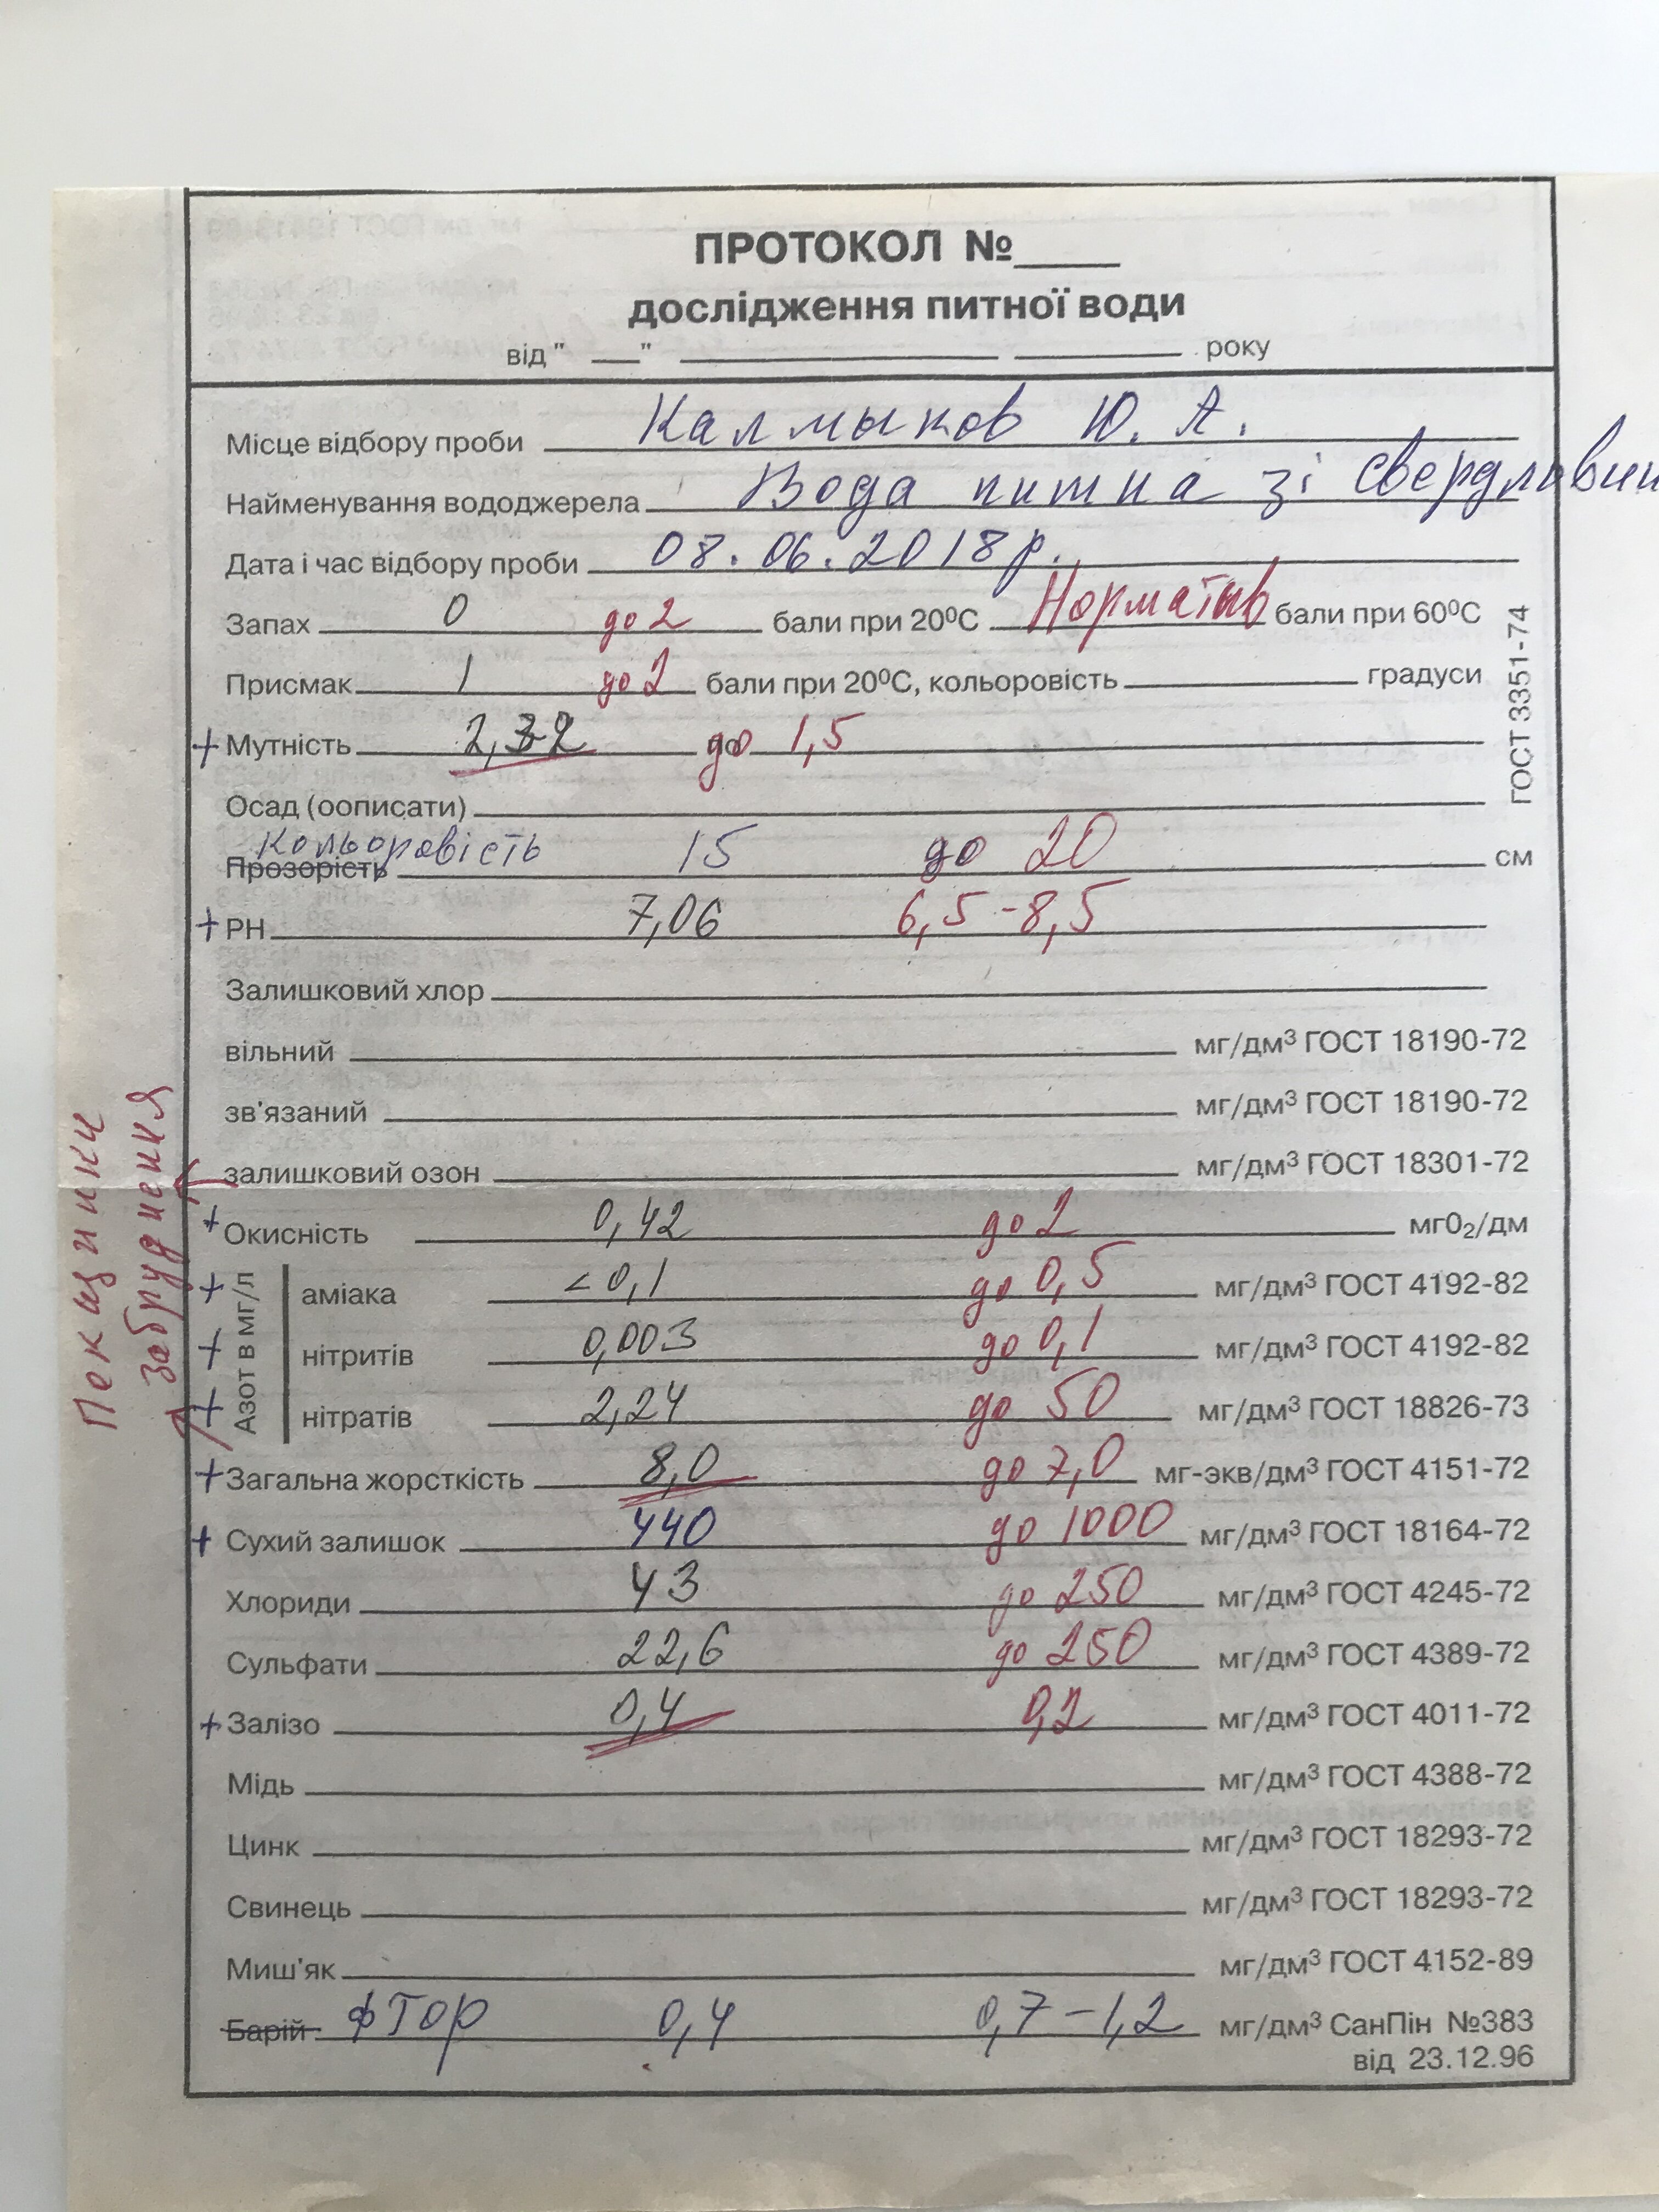 ПРОТОКОЛ №____
дослідження питної води
від "___" ____________ ________ року
Місце відбору проби Калмыков Ю. А.
Найменування вододжерела Вода питна зі свердловин
Дата і час відбору проби 08.06.2018р.
Запах 0 до 2 бали при 20⁰С Норматив бали при 60⁰С
Присмак 1 до 2 бали при 20⁰С, кольоровість градуси
+ Мутність 2,32 до 1,5
ГОСТ 3351-74
Осад (оописати)
Кольоровість
Прозорість 15 до 20 см
+ РН 7,06 6,5-8,5
Залишковий хлор
вільний мг/дм³ ГОСТ 18190-72
зв'язаний мг/дм³ ГОСТ 18190-72
залишковий озон мг/дм³ ГОСТ 18301-72
Показники
забруднення
+ Окисність 0,42 до 2 мг0₂/дм
Азот в мг/л
+ аміака <0,1 до 0,5 мг/дм³ ГОСТ 4192-82
+ нітритів 0,003 до 0,1 мг/дм³ ГОСТ 4192-82
+ нітратів 2,24 до 50 мг/дм³ ГОСТ 18826-73
+ Загальна жорсткість 8,0 до 7,0 мг-экв/дм³ ГОСТ 4151-72
+ Сухий залишок 440 до 1000 мг/дм³ ГОСТ 18164-72
Хлориди 43 до 250 мг/дм³ ГОСТ 4245-72
Сульфати 22,6 до 250 мг/дм³ ГОСТ 4389-72
+ Залізо 0,4 0,2 мг/дм³ ГОСТ 4011-72
Мідь мг/дм³ ГОСТ 4388-72
Цинк мг/дм³ ГОСТ 18293-72
Свинець мг/дм³ ГОСТ 18293-72
Миш'як мг/дм³ ГОСТ 4152-89
Барій фтор 0,4 0,7-1,2 мг/дм³ СанПін №383
від 23.12.96